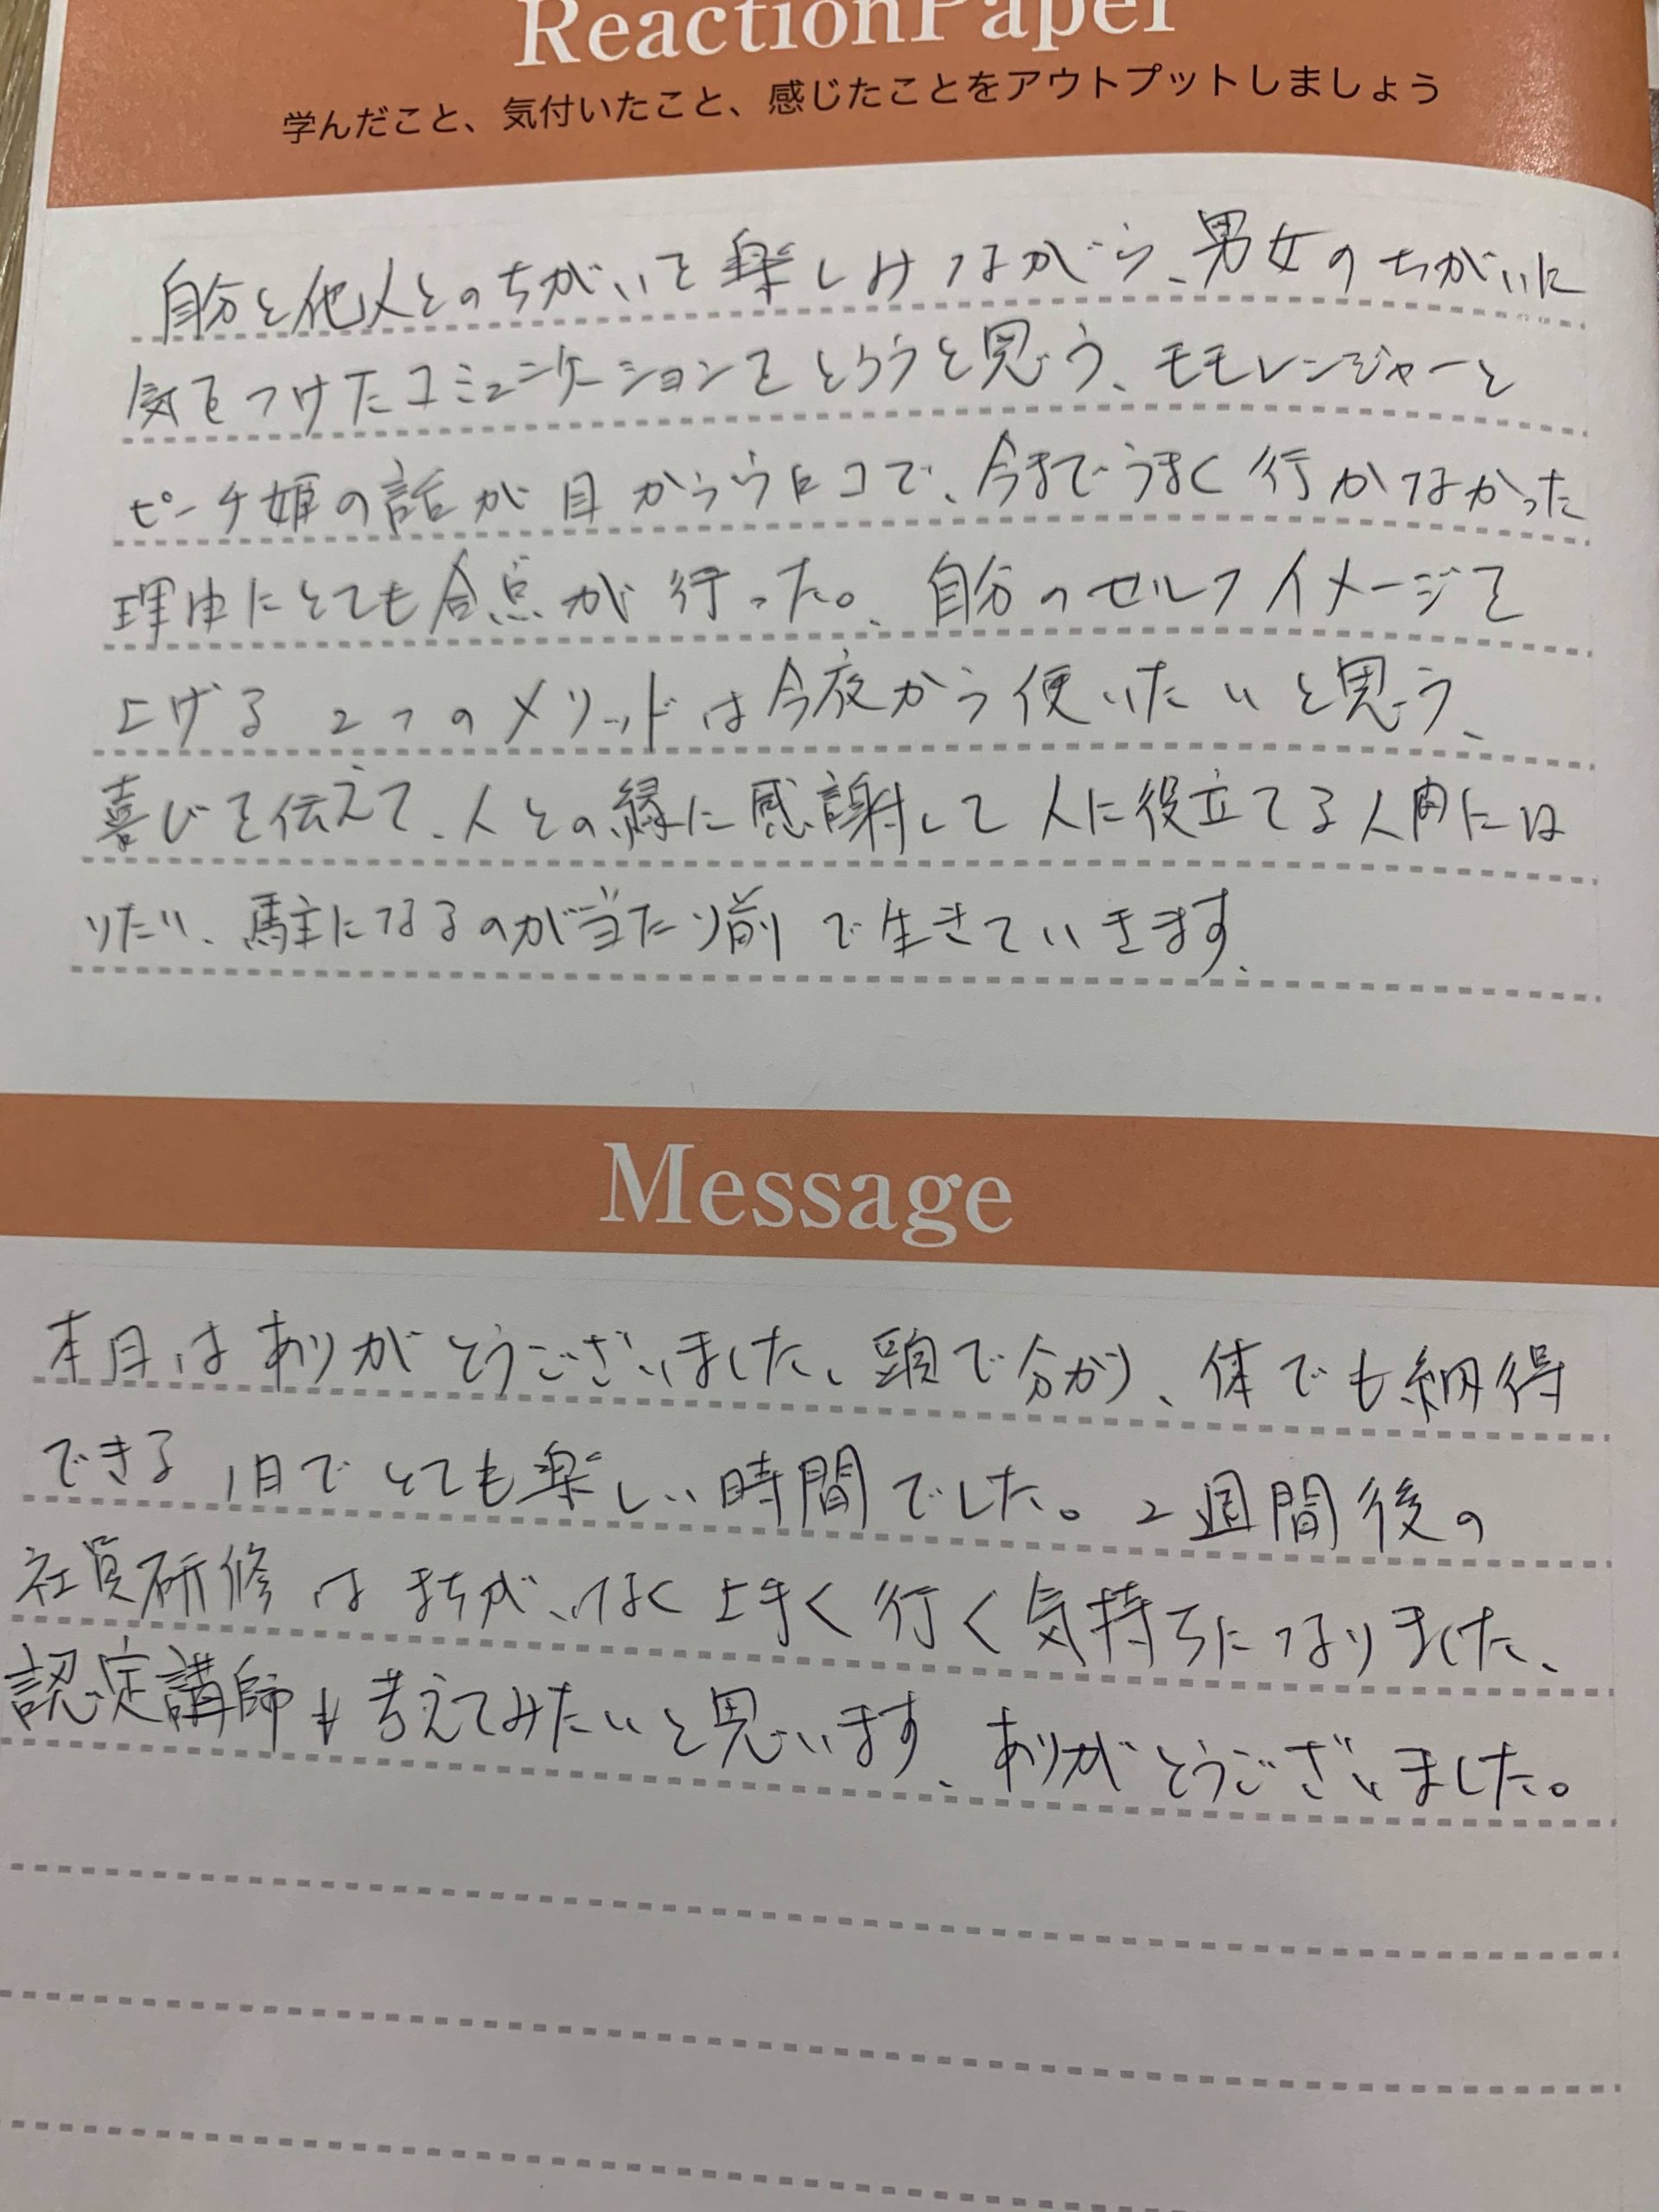 ReactionPaper
学んだこと、気付いたこと、感じたことをアウトプットしましょう
自分と他人とのちがいを楽しみながら、男女のちがいに
気をつけたコミュニケーションをとろうと思う、モモレンジャーと
ピーチ姫の話が目からウロコで、今までうまく行かなかった
理由にとても合点が行った。自分のセルフイメージを
上げる2つのメソッドは今夜から使いたいと思う、
喜びを伝えて、人との縁に感謝して人に役立てる人間にな
りたい、馬主になるのが当たり前で生きていきます、
Message
本日はありがとうございました、頭で分かり、体でも納得
できる1日でとても楽しい時間でした。2週間後の
社員研修はまちがいなく上手く行く気持ちになりました、
認定講師も考えてみたいと思います、ありがとうございました。